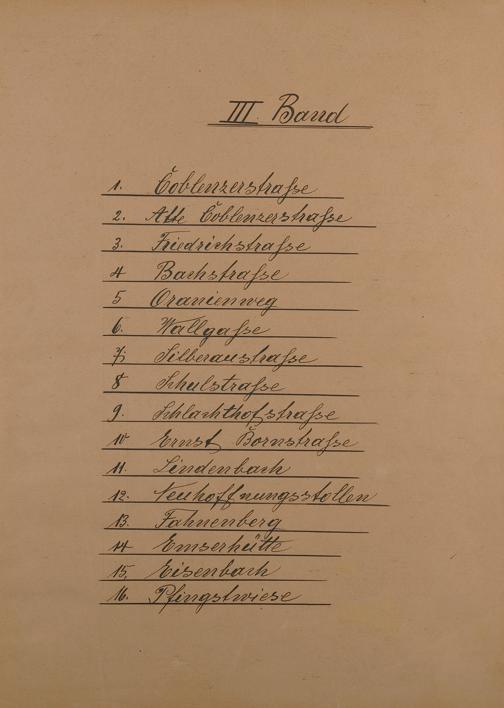 III. Band
1. Coblenzerstraße
2. Alte Coblenzerstraße
3. Friedrichstraße
4 Bachstraße
5 Oranienweg
6. Wallgaße
7. Silberaustraße
8 Schulstraße
9. Schlachthofstraße
10 Ernst Bornstraße
11. Lindenbach
12. Neuhoffnungsstollen
13. Fahnenberg
14 Emserhütte
15. Eisenbach
16. Pfingstwiese